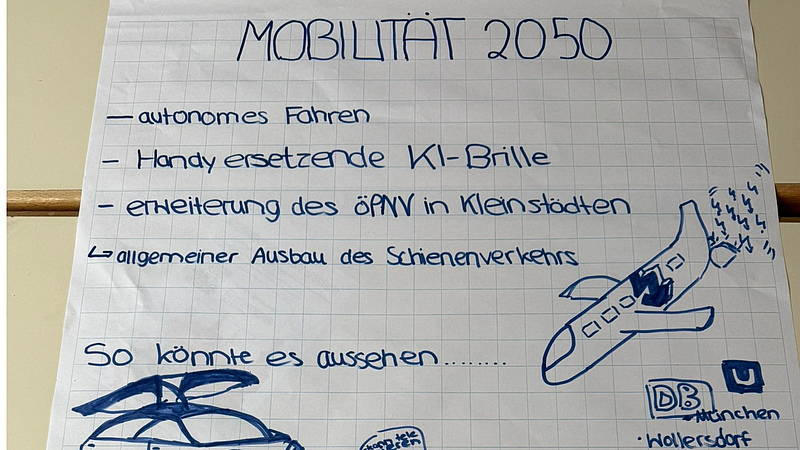 MOBILITÄT 2050
— autonomes Fahren
– Handy ersetzende KI-Brille
– erweiterung des ÖPNV in Kleinstädten
↳ allgemeiner Ausbau des Schienenverkehrs
So könnte es aussehen........
U
DB
München
· Wallersdorf